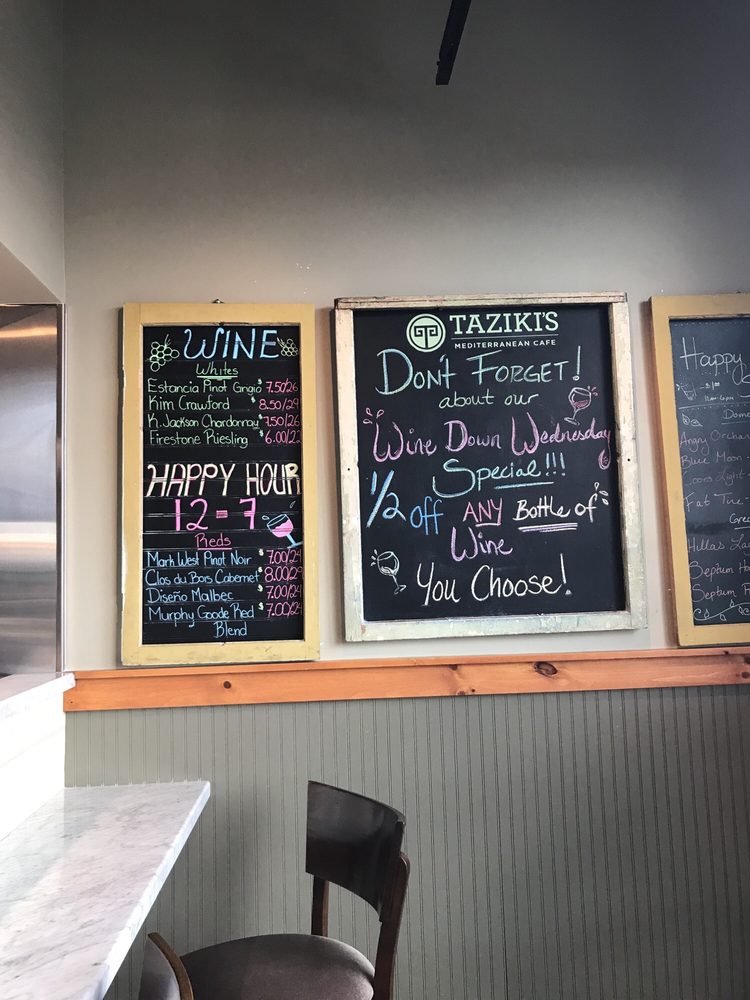 WINE
Whites
Estancia Pinot Grigio $7.50/26
Kim Crawford $8.50/29
K. Jackson Chardonnay $7.50/26
Firestone Riesling $6.00/22
HAPPY HOUR
12-7
Reds
Mark West Pinot Noir $7.00/24
Clos du Bois Cabernet $8.00/29
Diseño Malbec $7.00/24
Murphy Goode Red $7.00/24
Blend
TAZIKI'S
MEDITERRANEAN CAFE
DON'T FORGET!
about our
Wine Down Wednesday
Special!!!
1/2 off ANY Bottle of
Wine
You Choose!
Happy
Dom
Angry Orchar
Blue Moon
Coors Light
Fat Tire
Hillas La
Septum Ho
Septum F